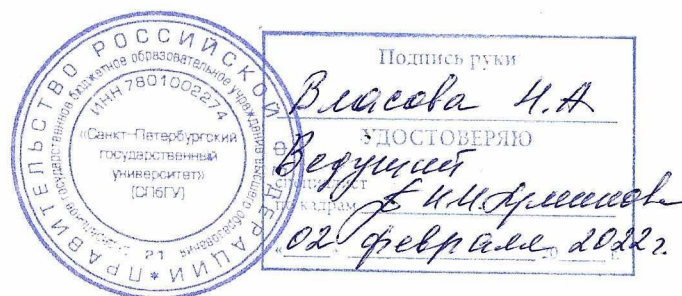 ПРАВИТЕЛЬСТВО РОССИЙСКОЙ ФЕДЕРАЦИИ *
федеральное государственное бюджетное образовательное учреждение высшего образования
21
ИНН 7801002274
«Санкт-Петербургский
государственный
университет»
(СПбГУ)
Подпись руки
Власова Н.А
УДОСТОВЕРЯЮ
Ведущий
специалист
по кадрам И.И.
02 февраля 2022 г.